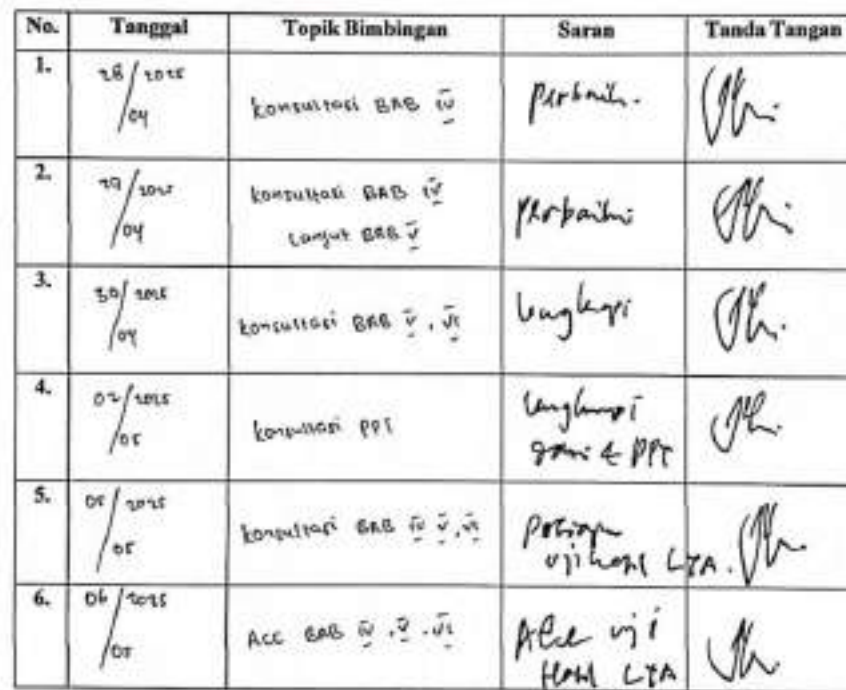 No. Tanggal Topik Bimbingan Saran Tanda Tangan
1. 28/04 2025 konsultasi BAB IV perbaiki.
2. 29/04 2025 konsultasi BAB IV perbaiki
Lanjut BAB V
3. 30/04 2025 konsultasi BAB V, VI lengkapi
4. 02/05 2025 konsultasi PPT lengkapi
& PPT
5. 05/05 2025 konsultasi BAB IV V, VI
uji hasil LTA.
6. 06/05 2025 ACC BAB IV, V, VI Acc uji
Hasil LTA